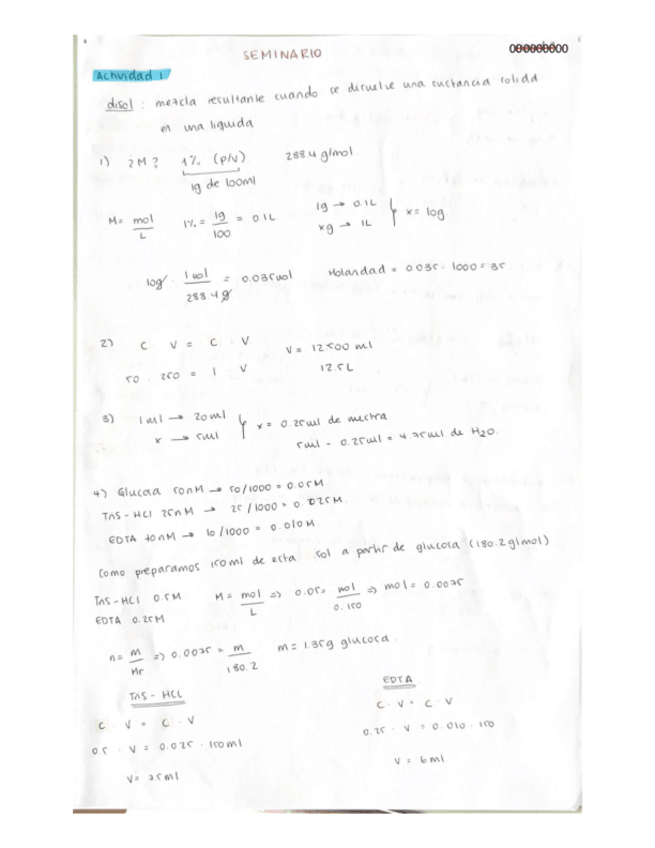 SEMINARIO
Actividad 1
disol : mezcla resultante cuando se disuelve una sustancia solida
en una liquida
1) ¿M? 1% (p/v) 288.4 g/mol
1g de 100ml
M= mol/L 1% = 1g/100 = 0.1L 1g → 0.1L x = 10g
xg → 1L
10g · 1 mol/288.4 g = 0.035mol Molaridad = 0.035 · 1000 = 35
2) C · V = C · V V = 12500 ml
50 · 250 = 1 · V 12.5L
3) 1ml → 20ml x = 0.25ml de mestra
x → 5ml 5ml - 0.25ml = 4.75ml de H2O.
4) Glucosa 50nM → 50/1000 = 0.05M
TAS-HCl 25nM → 25/1000 = 0.025M
EDTA 10nM → 10/1000 = 0.010M
Como preparamos 150ml de esta sol a partir de glucosa (180.2 g/mol)
TAS-HCl 0.5M M = mol/L => 0.05 = mol/0.150 => mol = 0.0075
EDTA 0.25M
n = m/Mr => 0.0075 = m/180.2 m = 1.35g glucosa.
TAS - HCL
C · V = C · V
0.5 · V = 0.025 · 150ml
V = 7.5ml
EDTA
C · V = C · V
0.25 · V = 0.010 · 150
V = 6ml